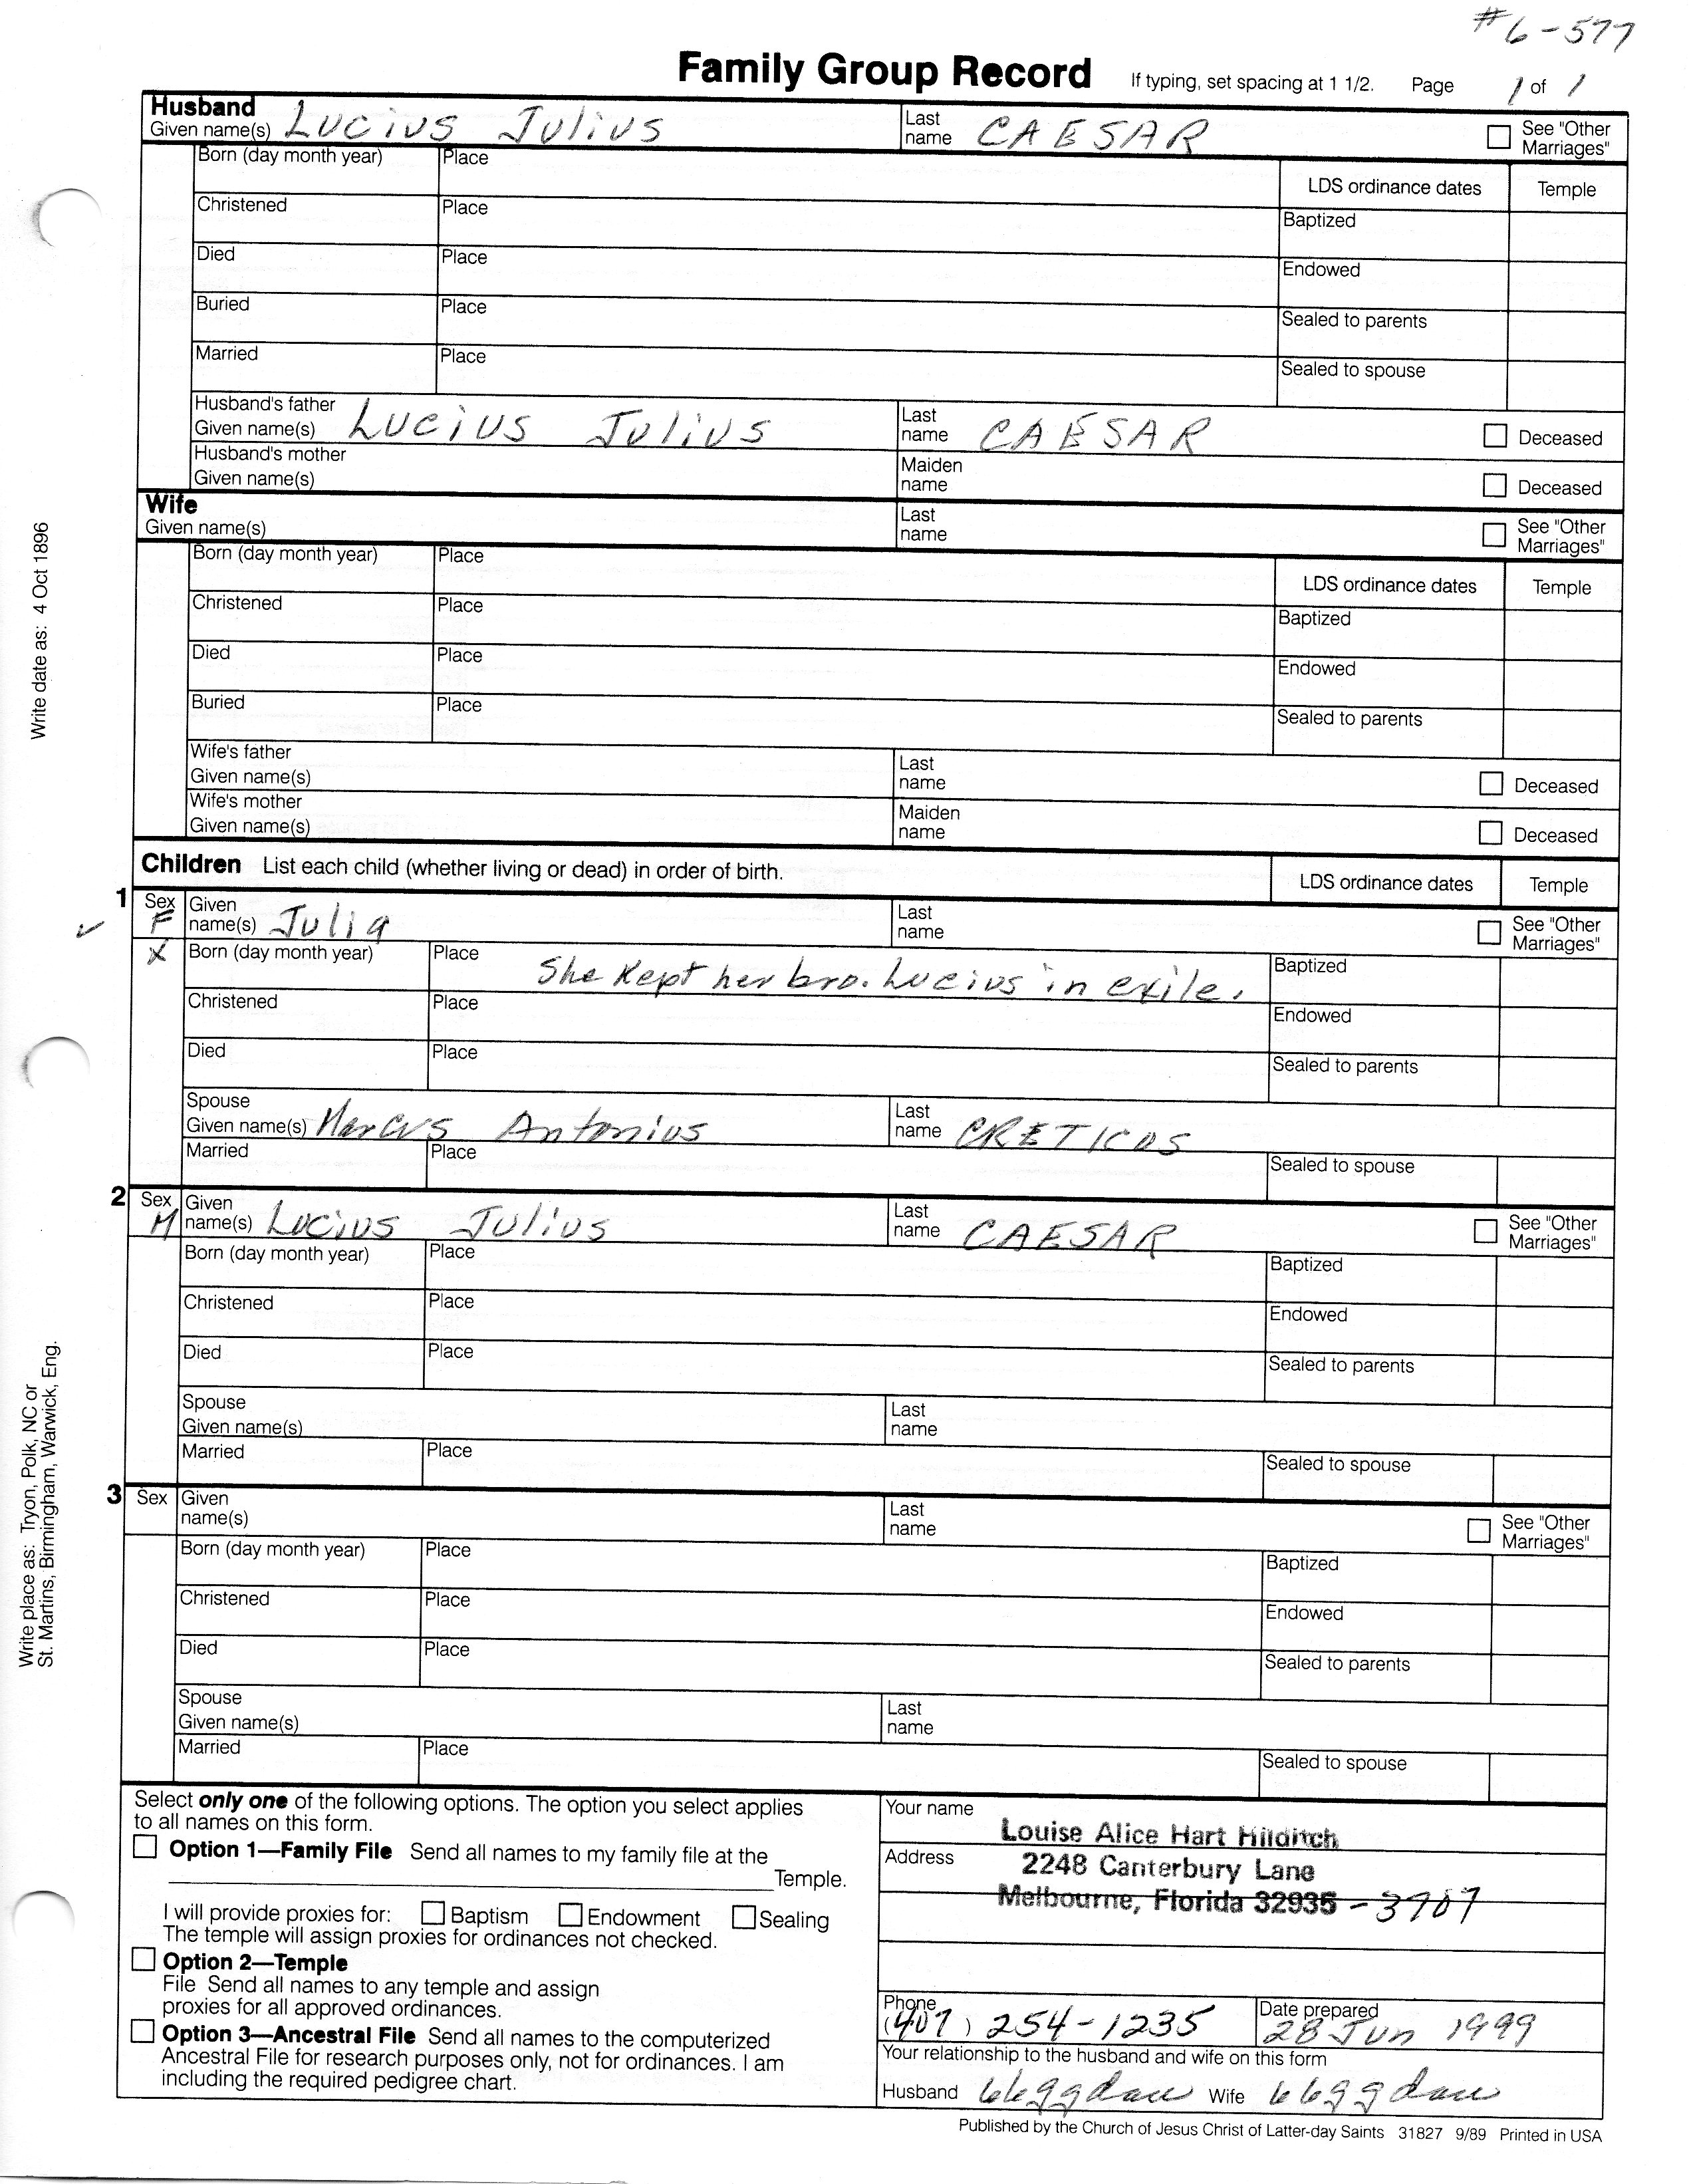 #6-577
Family Group Record If typing, set spacing at 1 1/2. Page 1 of 1
Husband
Given name(s) Lucius Julius Last name CAESAR See "Other Marriages"
Born (day month year) Place
LDS ordinance dates Temple
Christened Place Baptized
Died Place Endowed
Buried Place Sealed to parents
Married Place Sealed to spouse
Husband's father
Given name(s) Lucius Julius Last name CAESAR Deceased
Husband's mother
Given name(s) Maiden name Deceased
Wife
Given name(s) Last name See "Other Marriages"
Born (day month year) Place
LDS ordinance dates Temple
Christened Place Baptized
Died Place Endowed
Buried Place Sealed to parents
Wife's father
Given name(s) Last name Deceased
Wife's mother
Given name(s) Maiden name Deceased
Children List each child (whether living or dead) in order of birth. LDS ordinance dates Temple
1 Sex F Given name(s) Julia Last name See "Other Marriages"
X Born (day month year) Place She Kept her bro. Lucius in exile. Baptized
Christened Place Endowed
Died Place Sealed to parents
Spouse
Given name(s) Marcus Antonius Last name CRETICOS
Married Place Sealed to spouse
2 Sex M Given name(s) Lucius Julius Last name CAESAR See "Other Marriages"
Born (day month year) Place Baptized
Christened Place Endowed
Died Place Sealed to parents
Spouse
Given name(s) Last name
Married Place Sealed to spouse
3 Sex Given name(s) Last name See "Other Marriages"
Born (day month year) Place Baptized
Christened Place Endowed
Died Place Sealed to parents
Spouse
Given name(s) Last name
Married Place Sealed to spouse
Write date as: 4 Oct 11896
Write place as: Tryon, Polk, NC or
St. Martins, Birmingham, Warwick, Eng.
Select only one of the following options. The option you select applies
to all names on this form.
Option 1—Family File Send all names to my family file at the
Temple.
I will provide proxies for: Baptism Endowment Sealing
The temple will assign proxies for ordinances not checked.
Option 2—Temple
File Send all names to any temple and assign
proxies for all approved ordinances.
Option 3—Ancestral File Send all names to the computerized
Ancestral File for research purposes only, not for ordinances. I am
including the required pedigree chart.
Your name Louise Alice Hart Hilditch
Address 2248 Canterbury Lane
Melbourne, Florida 32935-3707
Phone (407) 254-1235 Date prepared 28 Jun 1999
Your relationship to the husband and wife on this form
Husband 66ggdau Wife 66ggdau
Published by the Church of Jesus Christ of Latter-day Saints 31827 9/89 Printed in USA